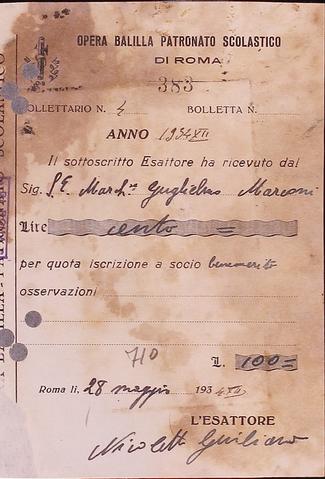 OPERA BALILLA PATRONATO SCOLASTICO
DI ROMA
383
BOLLETTARIO N. 4 BOLLETTA N.
ANNO 1934 XII
Il sottoscritto Esattore ha ricevuto dal
Sig. S.E. March.se Guglielmo Marconi
Lire cento =
per quota iscrizione a socio benemerito
osservazioni
710
L. 100=
Roma lì, 28 maggio 1934 XII
L'ESATTORE
Nicoletti Giuliano